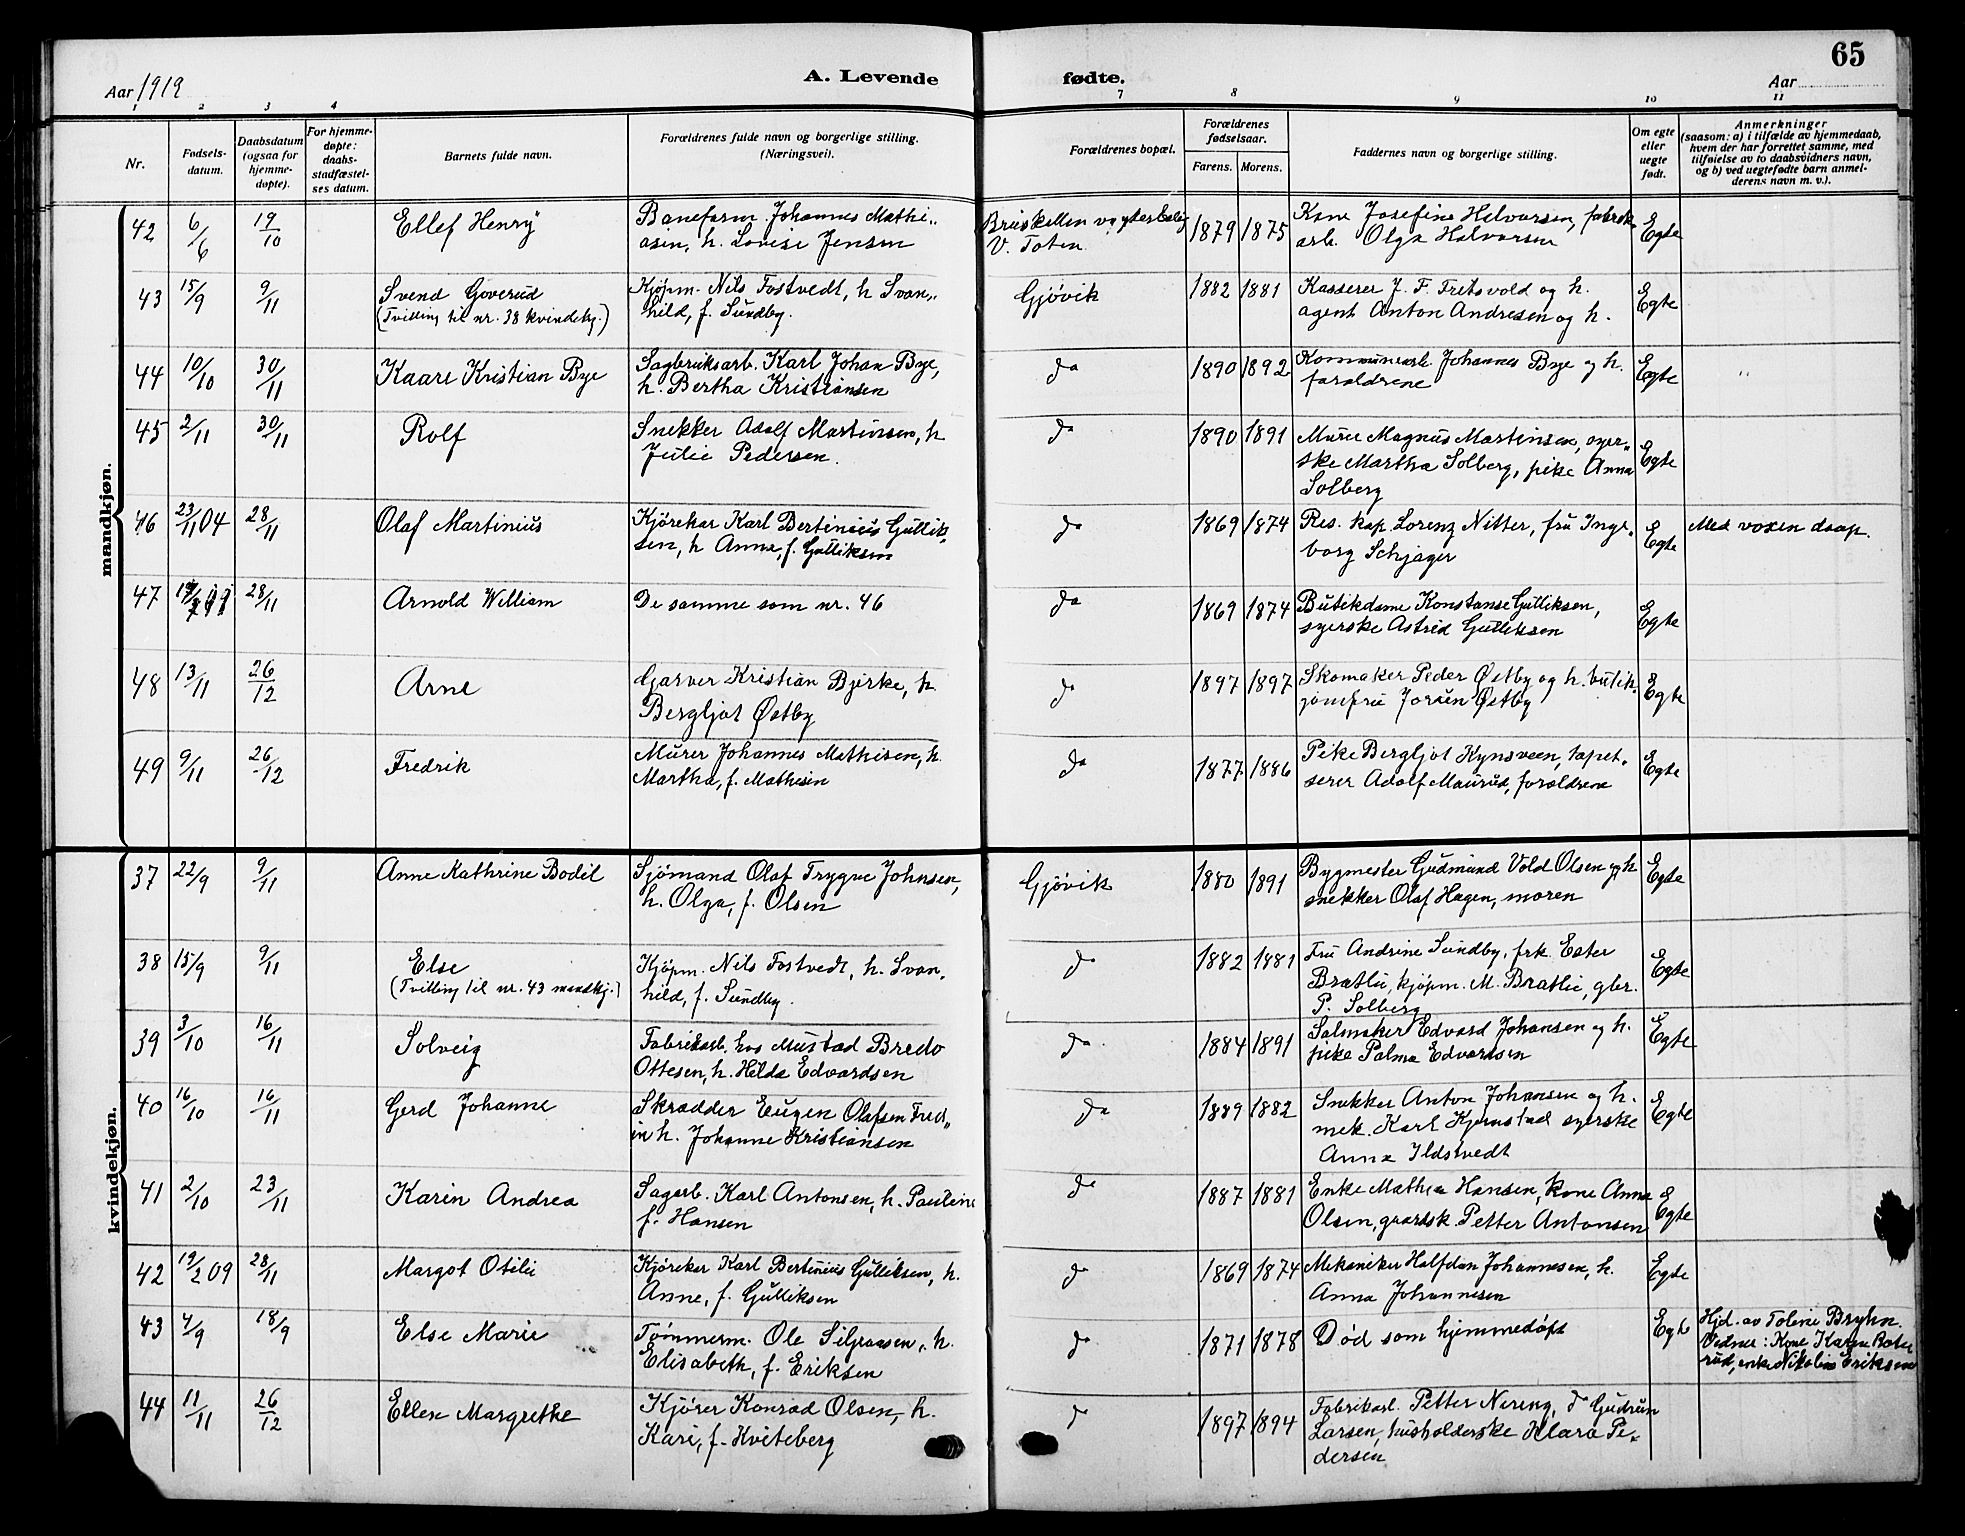 65
Aar 1919 A. Levende fødte. Aar
1 2 3 4 7 8 9 10 11
Nr. Fødsels-datum. Daabsdatum (ogsaa for hjemme-døpte). For hjemme-døpte: daabs-stadfæstel-ses datum. Barnets fulde navn. Forældrenes fulde navn og borgerlige stilling. (Næringsvei). Forældrenes bopæl. Forældrenes fødselsaar. Farens. Morens. Faddernes navn og borgerlige stilling. Om egte eller uegte født. Anmerkninger (saasom: a) i tilfælde av hjemmedaab, hvem der har forrettet samme, med tilføielse av to daabsvidners navn, og b) ved uegtefødte barn anmel-derens navn m. v.).
mandkjøn.
42 6/6 19/10 Ellef Henry Baneform. Johannes Mathi„ V. Toten 1879 1875 Kone Josefine Halvorsen, fabrik. Egte
asen, h. Lovise Jensen arb. Olga Halvorsen
43 15/9 9/11 Svend Goverud Kjøpm. Nils Fostvedt, h Svan„ Gjøvik 1882 1881 Kasserer J. F. Fritsvold og h. Egte
(Tvilling til nr. 38 kvindekj.) hild, f. Sundby. agent Anton Andresen og h.
44 10/10 30/11 Kaare Kristian Bye Sagbruksarb. Karl Johan Bye, do 1890 1892 Kommunearb Johannes Bye og h. Egte „
h. Bertha Kristiansen forældrene
45 2/11 30/11 Rolf Snekker Adolf Martinsen, h do 1890 1891 Murer Magnus Martinsen, syer„ Egte
Julie Pedersen. ske Martha Solberg, pike Anna
Solberg
46 23/11 04 28/11 Olaf Martinius Kjørekar Karl Bertinius Gullik„ do 1869 1874 Res. kap. Lorenz Nitter, fru Inge„ Egte Med voxen daap.
sen, h Anne, f. Gulliksen borg Schjager
47 28/11 Arnold William De samme som nr. 46 do 1869 1874 Butikdame Konstanse Gulliksen, Egte
syerske Astrid Gulliksen
48 13/11 26/12 Arne Garver Kristian Bjerke, h. do 1897 1897 Skomaker Peder Østby og h. butik. Egte
Bergljot Østby jomfru Jorun Østby
49 9/11 26/12 Fredrik Murer Johannes Mathisen, h. do 1877 1886 Pike Bergljot Kynsveen, tapet„ Egte
Martha, f. Mathisen serer Adolf Maurud, forældrene
kvindekjøn.
37 22/9 9/11 Anne Kathrine Bodil Sjømand Olaf Trygve Johnsen, Gjøvik 1880 1891 Bygmester Gudmund Vold Olsen og h Egte
h. Olga, f. Olsen snekker Olaf Hagen, moren
38 15/9 9/11 Else Kjøpm. Nils Fostvedt, h. Svan„ do 1882 1881 Fru Andrine Sundby, frk. Ester Egte
(Tvilling til nr. 43 mandkj.) hild, f. Sundby. Bratlie, kjøpm. M. Bratlie, gbr.
P. Solberg
39 3/10 16/11 Solveig Fabrikarb. hos Mustad Bredo do 1884 1891 Salmaker Edvard Johansen og h. Egte
Ottesen, h. Hilda Edvardsen pike Palma Edvardsen
40 16/10 16/11 Gerd Johanne Skrædder Eugen Olafsen Fred„ do 1889 1882 Snekker Anton Johansen og h. Egte
in h. Johanne Kristiansen mek. Karl Kjernstad syerske
Anna Ildstvedt
41 2/10 23/11 Karin Andrea Sagarb. Karl Antonsen, h. Pauline do 1887 1881 Enke Mathea Hansen, kone Anna Egte
f. Hansen Olsen, gaardsk. Petter Antonsen
42 19/2 09 28/11 Margot Otilie Kjørekar Karl Bertinius Gulliksen, h. do 1869 1874 Mekaniker Halfdan Johannesen, h. Egte
Anne, f. Gulliksen Anna Johannesen
43 4/9 18/9 Else Marie Tømmerm. Ole h. do 1871 1878 Død som hjemmedøpt Egte Hjd. av Toline Bryhn.
Elisabeth, f. Eriksen Vidner: Kone Karen
rud, enke Nikoline Eriksen
44 11/11 26/12 Ellen Margrethe Kjører Konrad Olsen, h. do 1897 1894 Fabrikarb. Petter Nereng, do Gudrun
Kari, f. Kviteberg Larsen, husholderske Klara Pe„
dersen